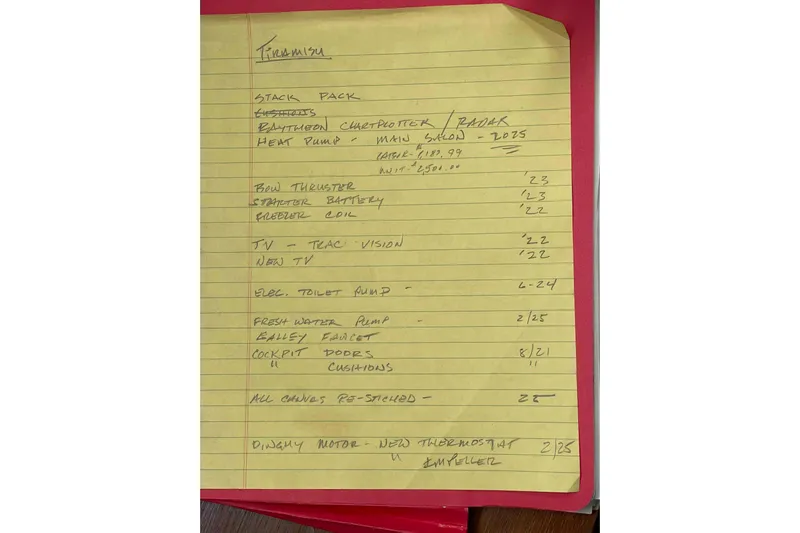 TIRAMISU
STACK PACK
CUSHIONS
RAYTHEON CHARTPLOTTER / RADAR
HEAT PUMP - MAIN SALON - 2025
LABOR - $1,187.99
UNIT - $2,500.00
BOW THRUSTER '23
STARTER BATTERY '23
FREEZER COIL '22
TV - TRAC VISION '22
NEW TV '22
ELEC. TOILET PUMP - 6-24
FRESH WATER PUMP - 2/25
GALLEY FAUCET
COCKPIT DOORS 8/21
" CUSHIONS "
ALL CANVAS RE-STICHED - 25
DINGHY MOTOR - NEW THERMOSTAT 2/25
" IMPELLER